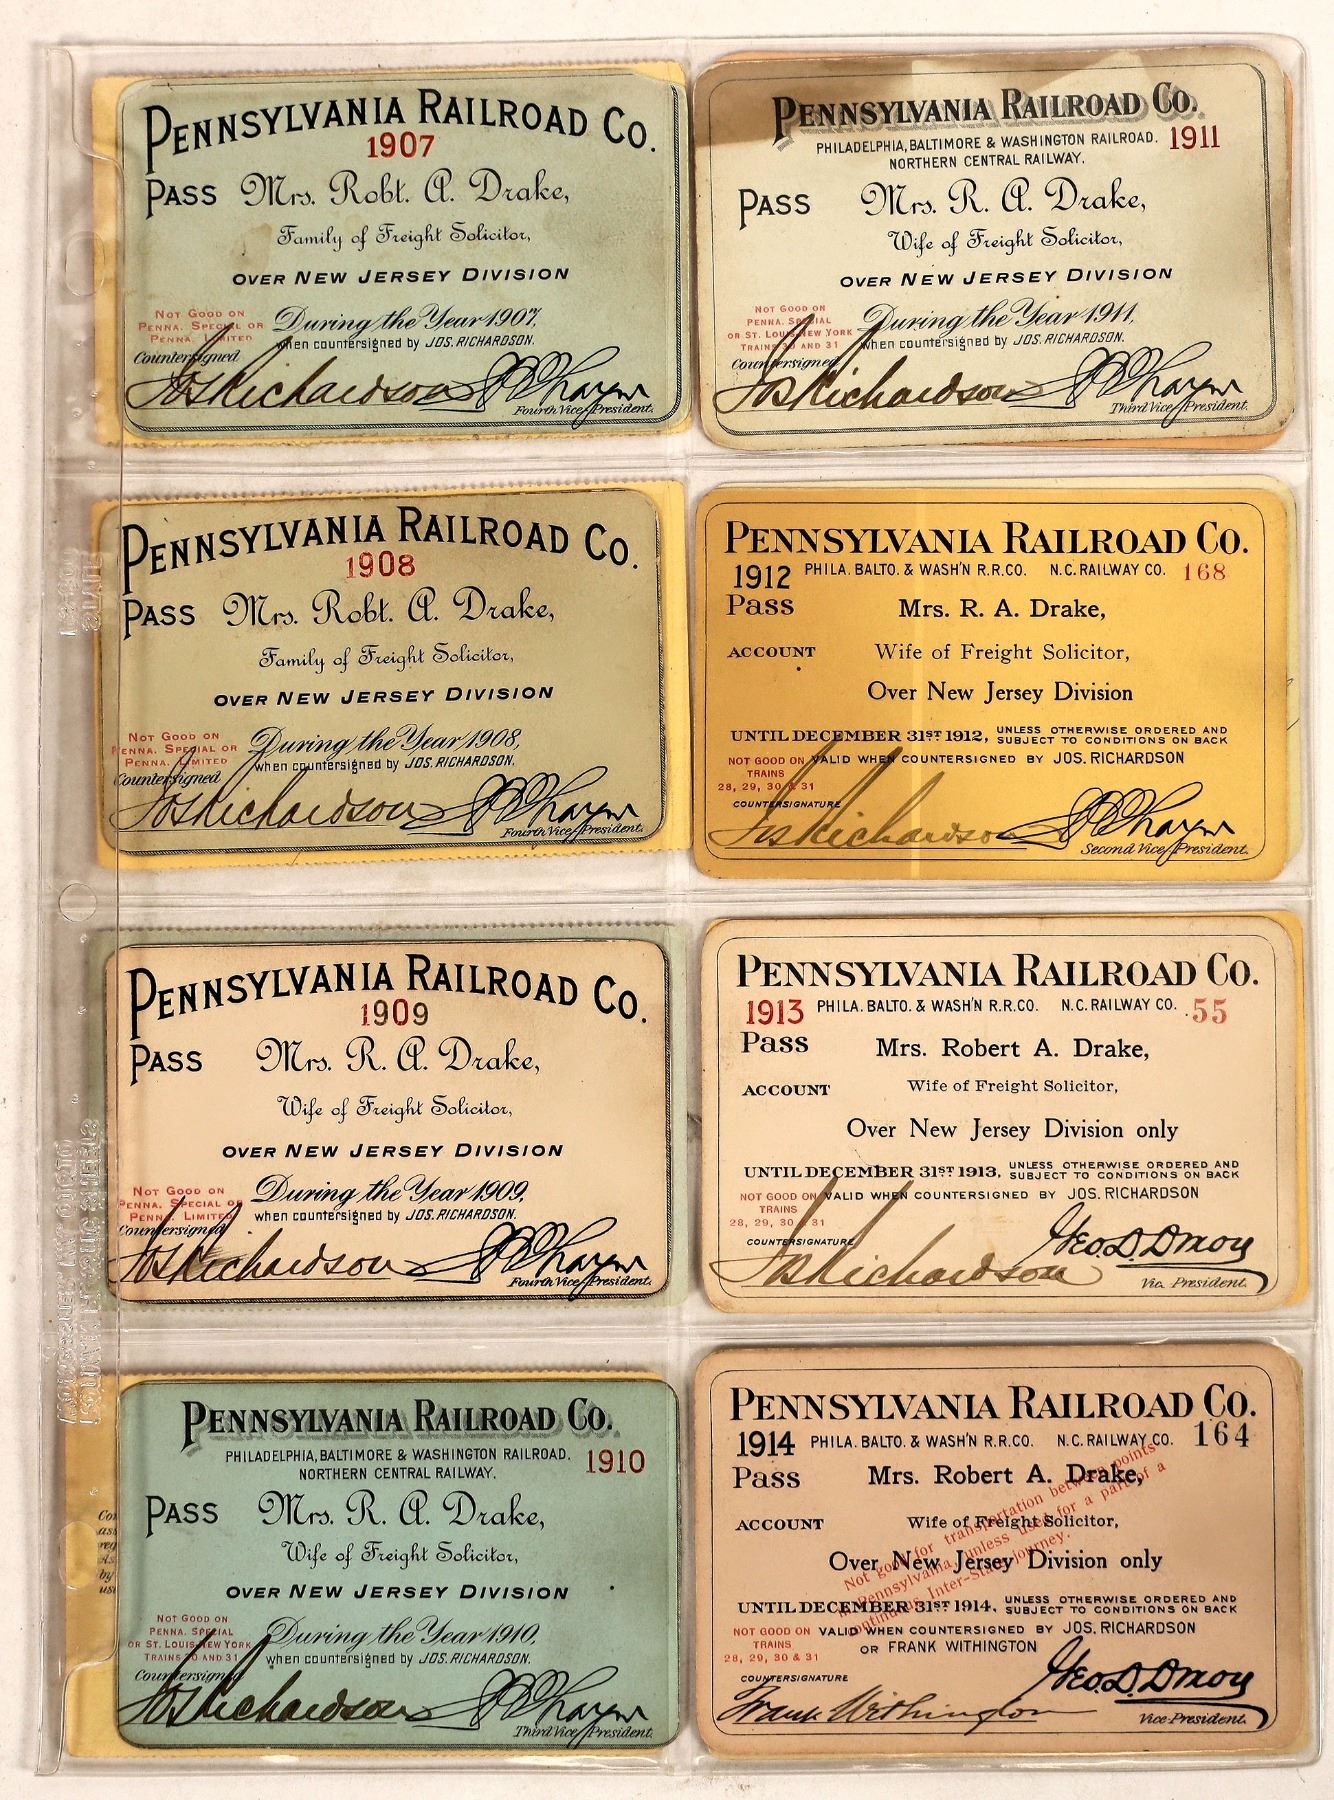 PENNSYLVANIA RAILROAD CO.
1907
PASS Mrs. Robt. A. Drake,
Family of Freight Solicitor,
OVER NEW JERSEY DIVISION
NOT GOOD ON
PENNA. SPECIAL OR
PENNA. LIMITED
During the Year 1907,
when countersigned by JOS. RICHARDSON.
Countersigned
Jos Richardson
Fourth Vice President.
PENNSYLVANIA RAILROAD CO.
1908
PASS Mrs. Robt. A. Drake,
Family of Freight Solicitor,
OVER NEW JERSEY DIVISION
NOT GOOD ON
PENNA. SPECIAL OR
PENNA. LIMITED
During the Year 1908,
when countersigned by JOS. RICHARDSON.
Countersigned
Jos Richardson
Fourth Vice President.
PENNSYLVANIA RAILROAD CO.
1909
PASS Mrs. R. A. Drake,
Wife of Freight Solicitor,
OVER NEW JERSEY DIVISION
NOT GOOD ON
PENNA. SPECIAL OR
PENNA. LIMITED
During the Year 1909,
when countersigned by JOS. RICHARDSON.
Countersigned
Jos Richardson
Fourth Vice President.
PENNSYLVANIA RAILROAD CO.
PHILADELPHIA, BALTIMORE & WASHINGTON RAILROAD.
NORTHERN CENTRAL RAILWAY.
1910
PASS Mrs. R. A. Drake,
Wife of Freight Solicitor,
OVER NEW JERSEY DIVISION
NOT GOOD ON
PENNA. SPECIAL
OR ST. LOUIS NEW YORK
TRAINS 30 AND 31
During the Year 1910,
when countersigned by JOS. RICHARDSON.
Countersigned
Jos Richardson
Third Vice President.
PENNSYLVANIA RAILROAD CO.
PHILADELPHIA, BALTIMORE & WASHINGTON RAILROAD.
NORTHERN CENTRAL RAILWAY.
1911
PASS Mrs. R. A. Drake,
Wife of Freight Solicitor,
OVER NEW JERSEY DIVISION
NOT GOOD ON
PENNA. SPECIAL
OR ST. LOUIS NEW YORK
TRAINS 30 AND 31
During the Year 1911,
when countersigned by JOS. RICHARDSON.
Countersigned
Jos Richardson
Third Vice President.
PENNSYLVANIA RAILROAD CO.
1912 PHILA. BALTO. & WASH'N R.R.CO. N.C. RAILWAY CO. 168
Pass Mrs. R. A. Drake,
ACCOUNT Wife of Freight Solicitor,
Over New Jersey Division
UNTIL DECEMBER 31ST 1912, UNLESS OTHERWISE ORDERED AND
SUBJECT TO CONDITIONS ON BACK
VALID WHEN COUNTERSIGNED BY JOS. RICHARDSON
NOT GOOD ON
TRAINS
28, 29, 30 & 31
COUNTERSIGNATURE
Jos Richardson
Second Vice President.
PENNSYLVANIA RAILROAD CO.
1913 PHILA. BALTO. & WASH'N R.R.CO. N.C. RAILWAY CO. 55
Pass Mrs. Robert A. Drake,
ACCOUNT Wife of Freight Solicitor,
Over New Jersey Division only
UNTIL DECEMBER 31ST 1913, UNLESS OTHERWISE ORDERED AND
SUBJECT TO CONDITIONS ON BACK
VALID WHEN COUNTERSIGNED BY JOS. RICHARDSON
NOT GOOD ON
TRAINS
28, 29, 30 & 31
COUNTERSIGNATURE
Jos Richardson
Geo. D. Dixon
Vice President.
PENNSYLVANIA RAILROAD CO.
1914 PHILA. BALTO. & WASH'N R.R.CO. N.C. RAILWAY CO. 164
Pass Mrs. Robert A. Drake,
ACCOUNT Wife of Freight Solicitor,
Over New Jersey Division only
Not good for transportation between points
in Pennsylvania, unless used for a part of a
continuous Inter-State journey.
UNTIL DECEMBER 31ST 1914, UNLESS OTHERWISE ORDERED AND
SUBJECT TO CONDITIONS ON BACK
VALID WHEN COUNTERSIGNED BY JOS. RICHARDSON
OR FRANK WITHINGTON
NOT GOOD ON
TRAINS
28, 29, 30 & 31
COUNTERSIGNATURE
Frank Withington
Geo. D. Dixon
Vice-President.